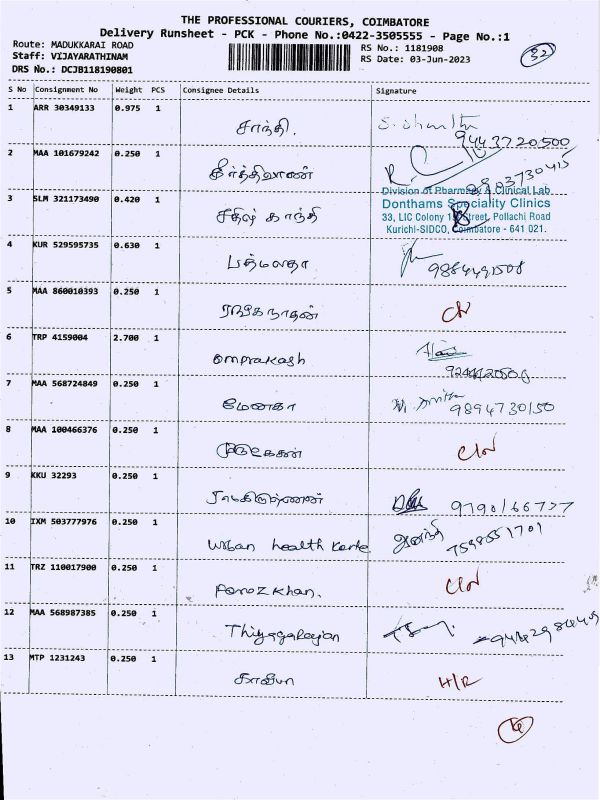 THE PROFESSIONAL COURIERS, COIMBATORE
Delivery Runsheet - PCK - Phone No.:0422-3505555 - Page No.:1
Route: MADUKKARAI ROAD
RS No.: 1181908
Staff: VIJAYARATHINAM
RS Date: 03-Jun-2023
DRS No.: DCJB118190801
32
S No Consignment No Weight PCS Consignee Details Signature
1 ARR 30349133 0.975 1 சாந்தி. 9443720500
2 MAA 101679242 0.250 1 கீர்த்திவாணன்
3 SLM 321173490 0.420 1 சதிஷ் காந்தி
Division of Pharmacy & Clinical Lab
Donthams Speciality Clinics
33, LIC Colony Street, Pollachi Road
Kurichi-SIDCO, Coimbatore - 641 021.
4 KUR 529595735 0.630 1 பத்மலதா 9884491508
5 MAA 860010393 0.250 1 ரங்கநாதன்
6 TRP 4159004 2.700 1 omprakash
7 MAA 568724849 0.250 1 மேனகா 9894730150
8 MAA 100466376 0.250 1 முருகேசன்
9 KKU 32293 0.250 1 ராமகிருஷ்ணன் 9790166777
10 IXM 503777976 0.250 1 Urban health
11 TRZ 110017900 0.250 1 Feroz khan.
12 MAA 568987385 0.250 1 Thiyagarajan
13 MTP 1231243 0.250 1 H/R